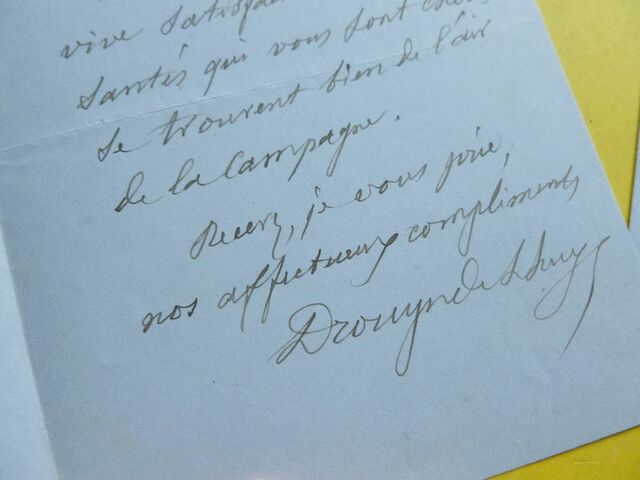 vive satisfac
santés qui vous sont chères
se trouvent bien de l'air
de la Campagne.
Recevez, je vous prie,
nos affectueux compliments
Drouyn de Lhuys